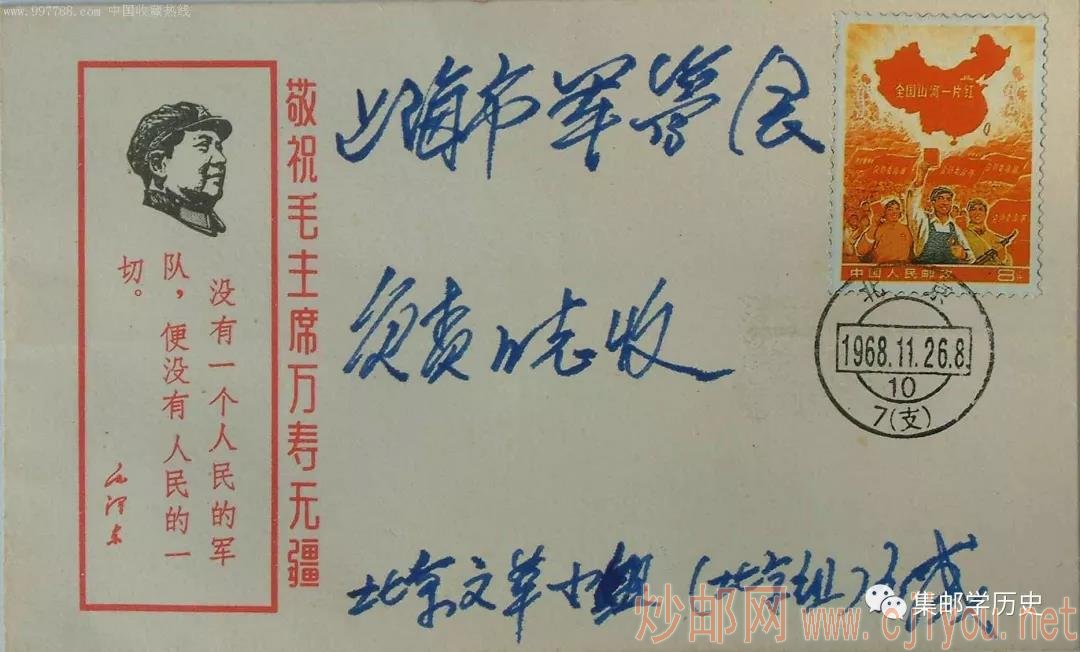 www.997788.com 中国收藏热线
敬祝毛主席万寿无疆
没有一个人民的军
队，便没有人民的一
切。
毛泽东
上海市军管会
负责同志收
北京文革小组（北京组）
全国山河一片红
中国人民邮政 8分
北京
1968.11.26.8
10
7(支)
集邮学历史
炒邮网 www.cjiyou.net